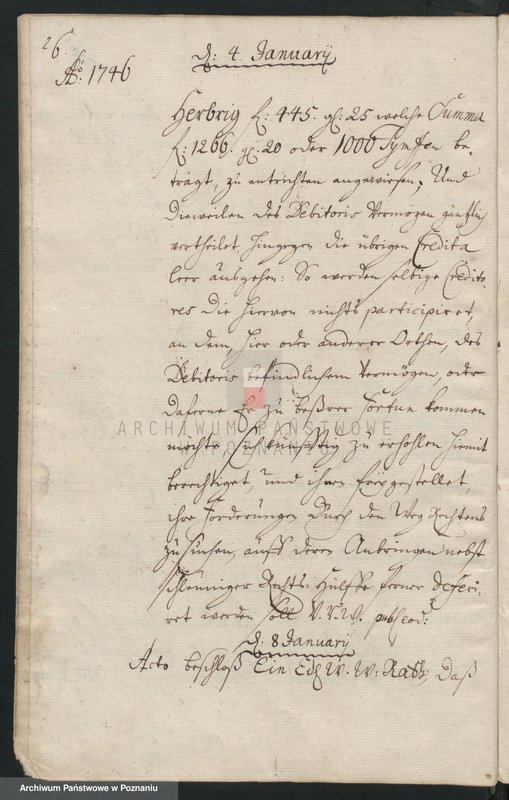 26.
Aō: 1746
d: 4. Januarij
Herbrig f: 445. gl: 25 welche Summa
f: 1266. gl. 20 oder 1000 Tymffen be-
trägt, zu entrichten angewiesen. Und
Dieweilen des Debitoris Vermögen gäntzlich
vertheilet, hingegen die übrigen Credita
leer ausgehen: So werden selbige Credito-
res die hiervon nichts participiret,
an dem, hier oder anderer Orthen, des
Debitoris befindlichem Vermögen, oder
daferne Er zu beßrer Fortun kommen
möchte, sich künfftig zu erhohlen hiemit
berechtiget, und ihnen frey gestellet,
ihre Forderungen durch den Weg Rechtens
zu suchen, auff deren Anbringen nebst
schleuniger Rechts-Hülffe ferner deferi-
ret werden soll V. R. W. publ: eod:
d: 8 Januarij
Acto beschloß Ein Edl. W. W: Rath, Daß
ARCHIWUM PAŃSTWOWE
POZNAŃ
Archiwum Państwowe w Poznaniu